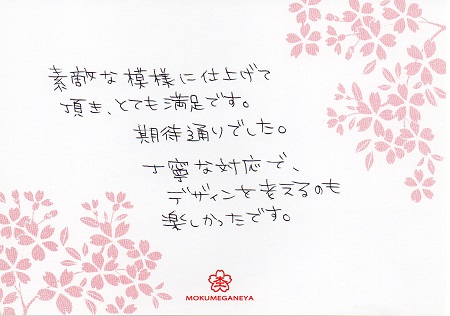 素敵な模様に仕上げて
頂き、とても満足です。
期待通りでした。
丁寧な対応で、
デザインを考えるのも
楽しかったです。
MOKUMEGANEYA